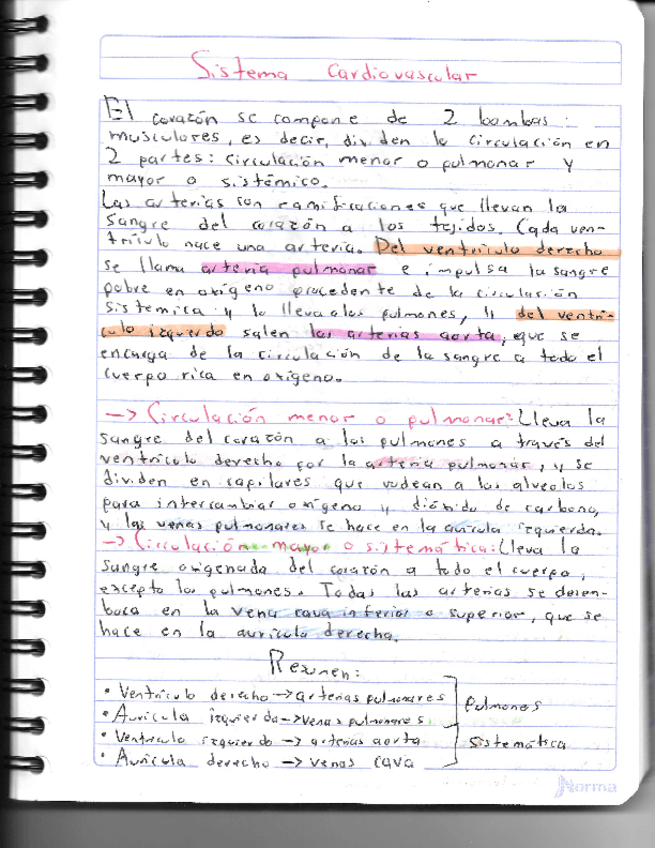 Sistema Cardiovascular
El corazón se compone de 2 bombas:
musculores, es decir, dividen la circulación en
2 partes: circulación menor o pulmonar y
mayor o sistémico.
Las arterias son ramificaciones que llevan la
sangre del corazón a los tejidos. Cada ven-
trículo nace una arteria. Del ventrículo derecho
se llama arteria pulmonar e impulsa la sangre
pobre en oxígeno procedente de la circulación
sistemica y la lleva a los pulmones, y del ventrí-
culo izquierdo salen las arterias aorta, que se
encarga de la circulación de la sangre a todo el
cuerpo rica en oxígeno.
—> Circulación menor o pulmonar: Lleva la
sangre del corazón a los pulmones a través del
ventrículo derecho por la arteria pulmonar, y se
dividen en capilares que rodean a los alveolos
para intercambiar oxígeno y dióxido de carbono,
y las venas pulmonares se hace en la aurícula izquierda.
—> Circulación mayor o sistemática: Lleva la
sangre oxigenada del corazón a todo el cuerpo,
excepto los pulmones. Todas las arterias se desen-
boca en la vena cava inferior o superior, que se
hace en la aurícula derecha.
Resumen:
• Ventrículo derecho —> arterias pulmonares
• Aurícula izquierda —> venas pulmonares
Pulmones
• Ventrículo izquierdo —> arterias aorta
• Aurícula derecho —> venas cava
Sistemática
Norma